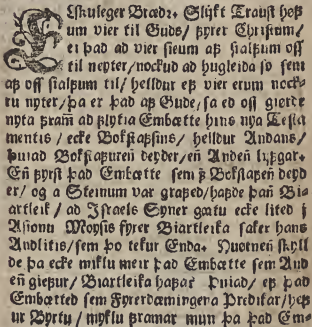 ELskuleger Brædr. Slijkt Traust høf
um vier til Guds/ fyrer Christum/
ei þad ad vier sieum af sialfum oss
til neyter/nockud ad hugleida so sem
af oss sialfum til/ helldur ef vier erum nock-
ru nyter/þa er þad af Gude/sa ed oss giorde
nyta fram ad flytia Embætte hins nya Testa
mentis / ecke Bokstafsins/ helldur Andans/
þuiad Bokstafuren deyder/en Anden lijfgar.
En fyrst þad Embætte sem z Bokstafsen deyd
er/ og a Steinum var grafed/hafde þañ Bi-
artleik / ad Israels Syner gætu ecke lited j
Asionu Moysis fyrer Biartleika saker hans
Andlitis/sem þo tekur Enda. Huornen skyll
de þa ecke miklu meir þad Embætte sem And
en giefur/ Biartleika hafa? Þuiad/ ef þad
Embætted sem Fyrerdæmingena Predikar/hef
ur Byrtu / myklu framar mun þad Em-